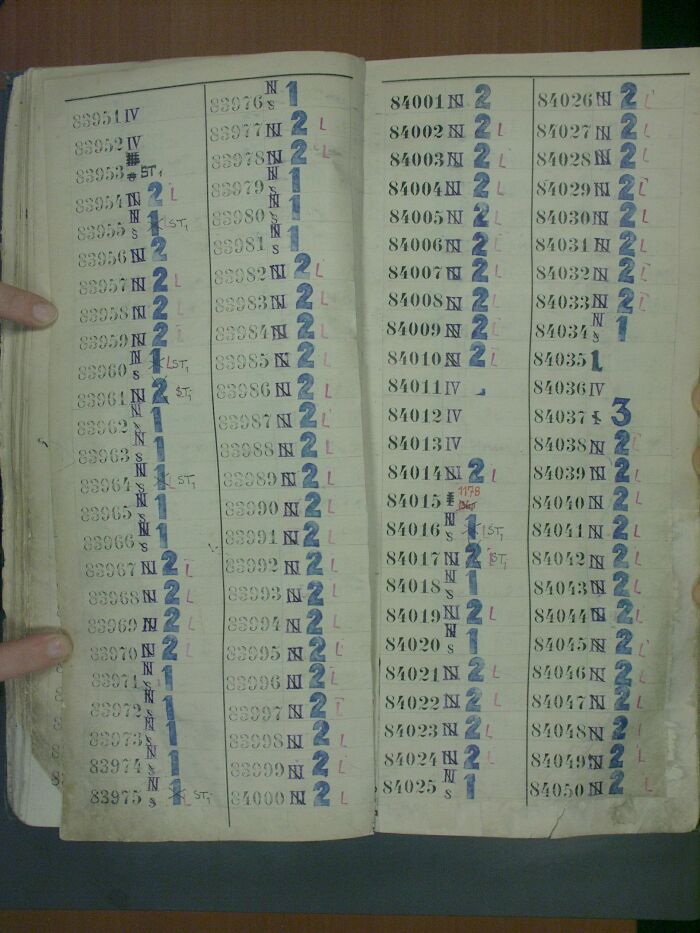 83951 IV
83952 IV
83953 ST1
83954 N 2 L
83955 N S 1 ST1
83956 N 2
83957 N 2 L
83958 N 2 L
83959 N 2 L
83960 N S 1 L ST1
83961 N 2 ST1
83962 N S 1
83963 N S 1
83964 N S 1 L ST1
83965 N S 1
83966 N S 1
83967 N 2 L
83968 N 2 L
83969 N 2 L
83970 N 2 L
83971 N S 1
83972 N S 1
83973 N S 1
83974 N S 1
83975 N S 1 L ST1
83976 N S 1
83977 N 2 L
83978 N 2 L
83979 N S 1
83980 N S 1
83981 N S 1
83982 N 2 L
83983 N 2 L
83984 N 2 L
83985 N 2 L
83986 N 2 L
83987 N 2 L
83988 N 2 L
83989 N 2 L
83990 N 2 L
83991 N 2 L
83992 N 2 L
83993 N 2 L
83994 N 2 L
83995 N 2 L
83996 N 2 L
83997 N 2 L
83998 N 2 L
83999 N 2 L
84000 N 2 L
84001 N 2
84002 N 2 L
84003 N 2 L
84004 N 2 L
84005 N 2 L
84006 N 2 L
84007 N 2 L
84008 N 2 L
84009 N 2 L
84010 N 2 L
84011 IV
84012 IV
84013 IV
84014 N 2 L
84015 1178
84016 N S 1 ST1
84017 N 2 ST1
84018 N S 1
84019 N 2 L
84020 N S 1
84021 N 2 L
84022 N 2 L
84023 N 2 L
84024 N 2 L
84025 N S 1
84026 N 2 L
84027 N 2 L
84028 N 2 L
84029 N 2 L
84030 N 2 L
84031 N 2 L
84032 N 2 L
84033 N 2 L
84034 N S 1
84035 1
84036 IV
84037 3
84038 N 2 L
84039 N 2 L
84040 N 2 L
84041 N 2 L
84042 N 2 L
84043 N 2 L
84044 N 2 L
84045 N 2 L
84046 N 2 L
84047 N 2 L
84048 N 2 L
84049 N 2 L
84050 N 2 L